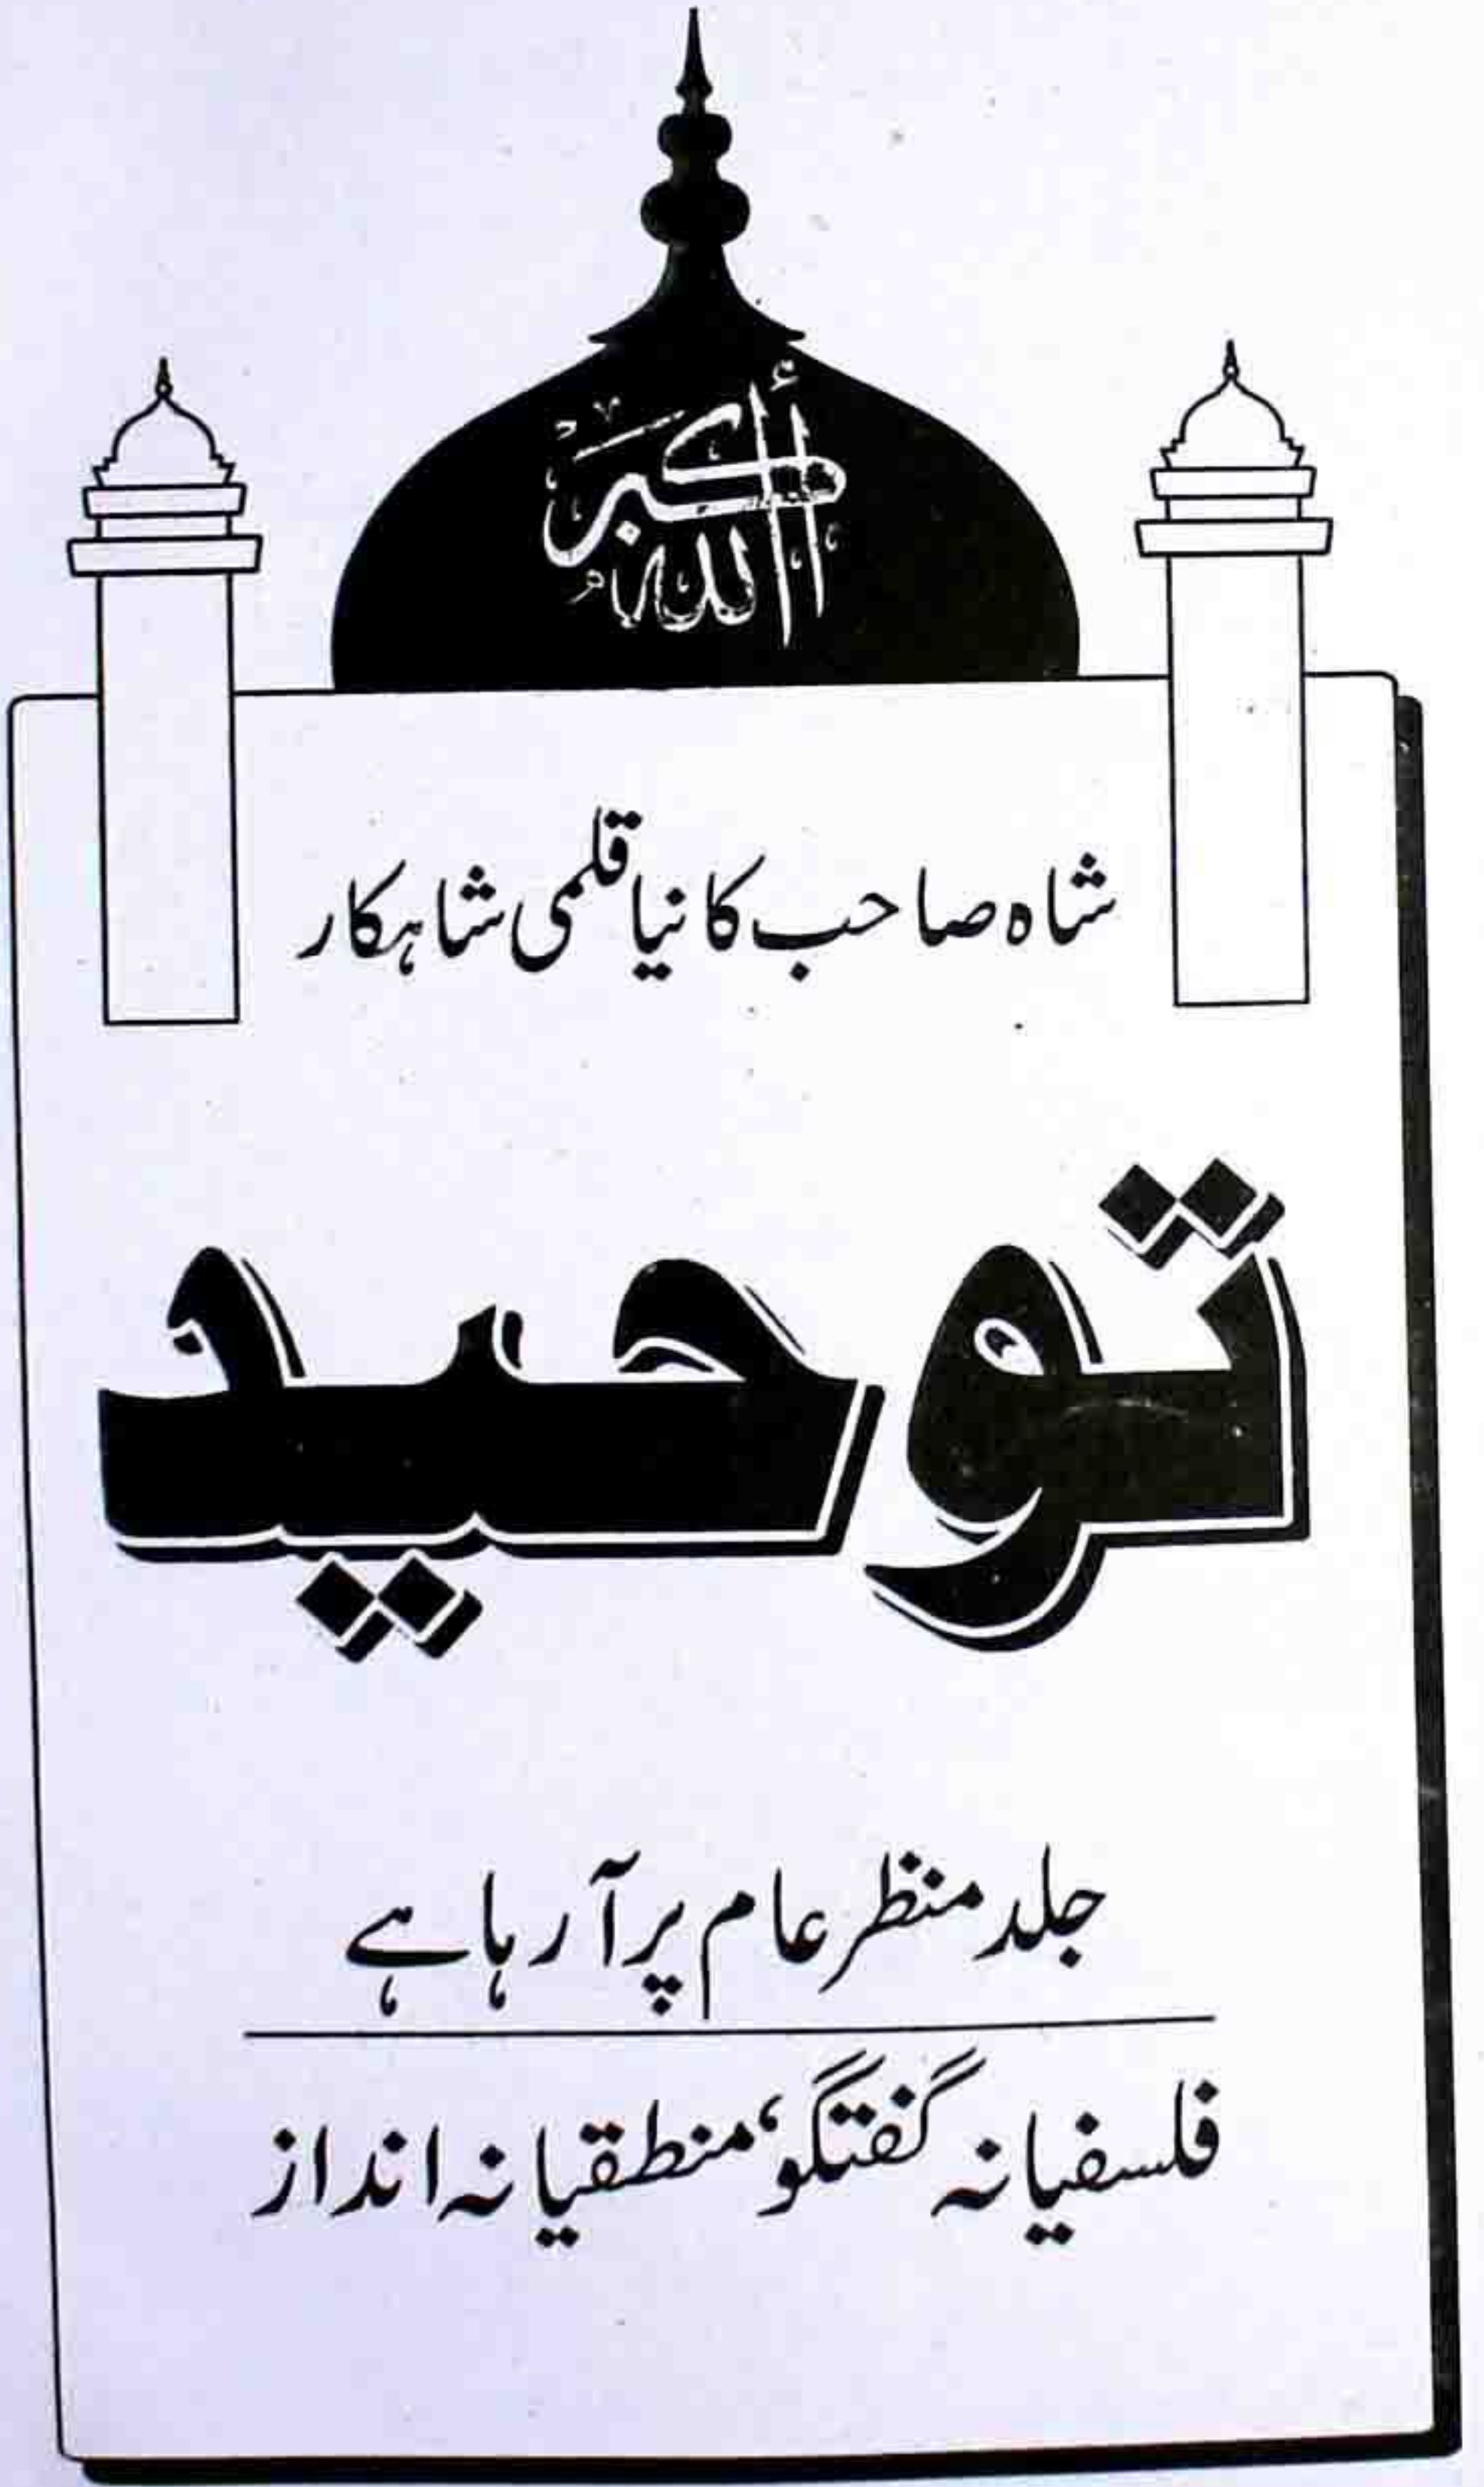 الله أكبر
شاہ صاحب کا نیا قلمی شاہکار
توحید
جلد منظر عام پر آ رہا ہے
فلسفیانہ گفتگو، منطقیانہ انداز